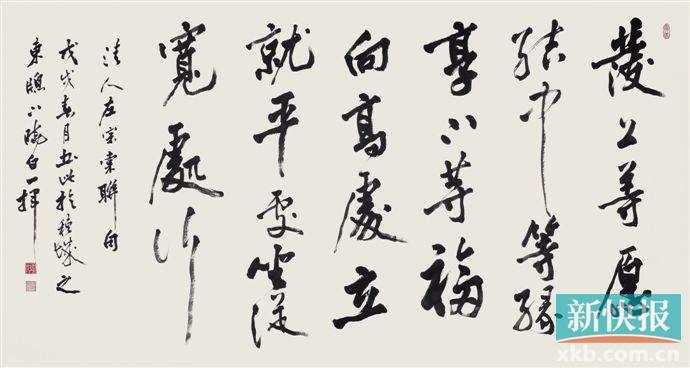 發上等愿
結中等緣
享下等福
向高處立
就平處坐從
寬處行
清人左宗棠聯句
戊戌春月書此於穗城之
東 一揮
新快报
xkb.com.cn